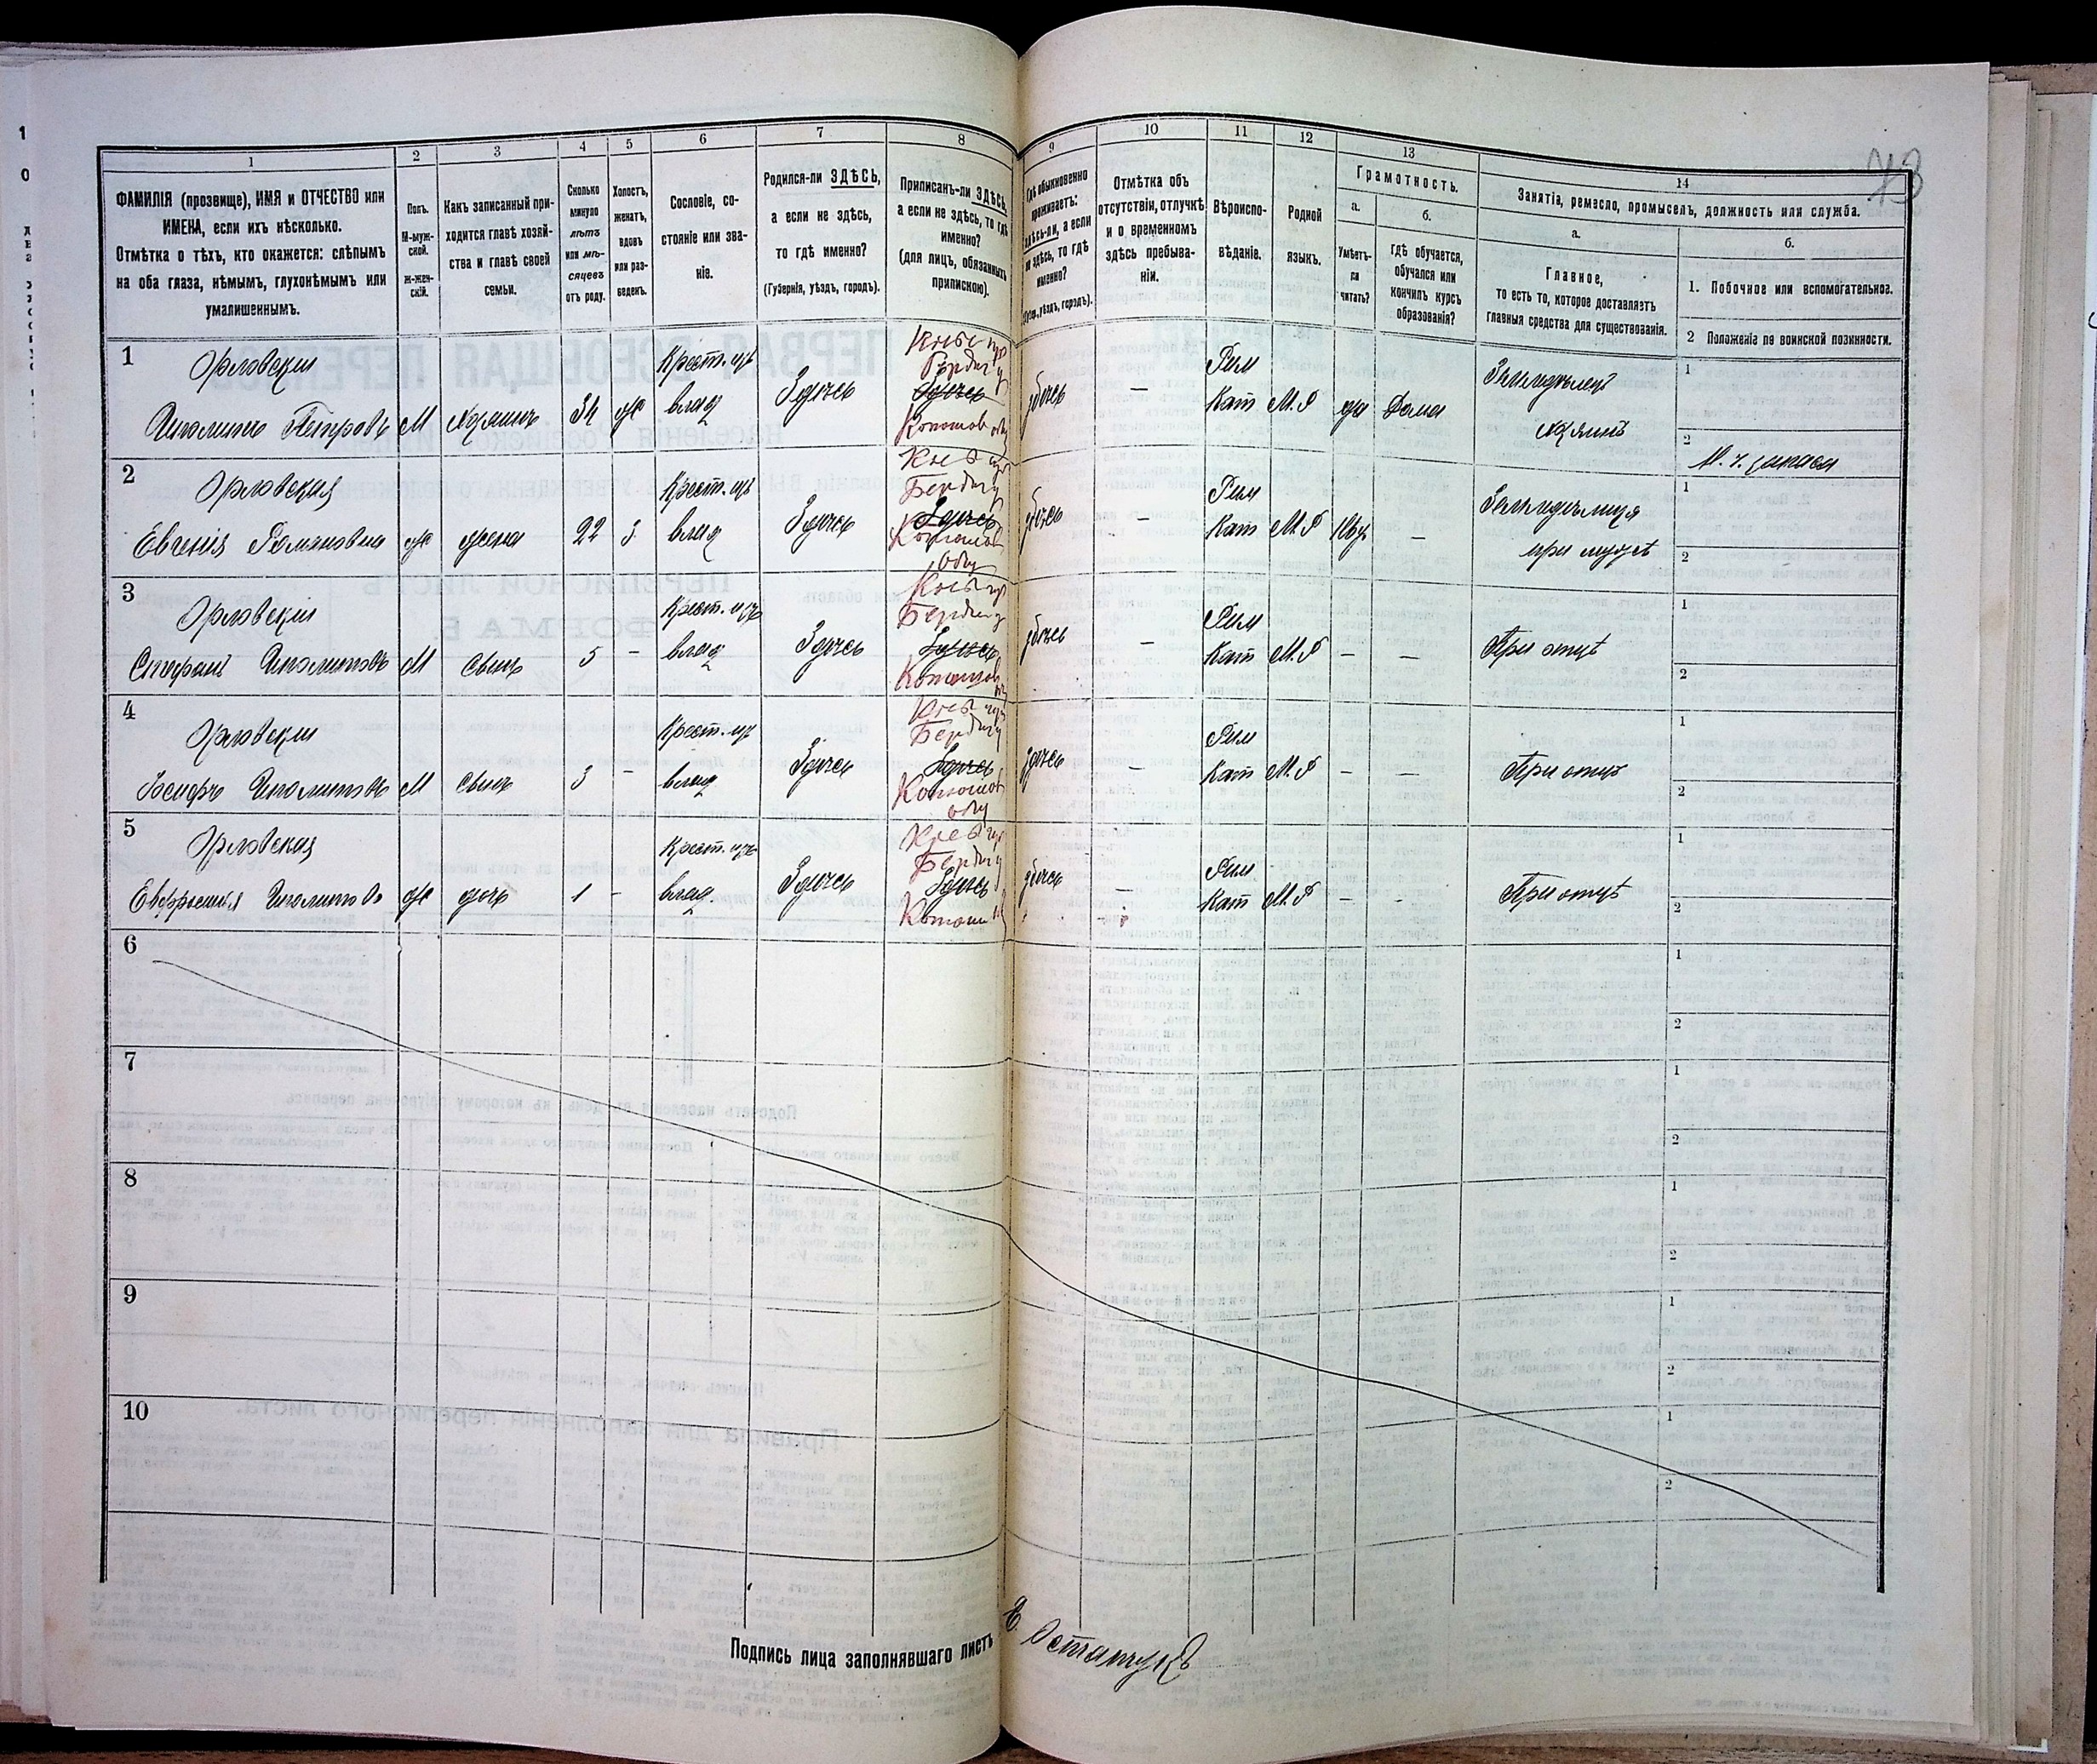 73
1
2
3
4
5
6
7
8
9
10
11
12
13
14
ФАМИЛІЯ (прозвище), ИМЯ и ОТЧЕСТВО или
ИМЕНА, если ихъ нѣсколько.
Отмѣтка о тѣхъ, кто окажется: слѣпымъ
на оба глаза, нѣмымъ, глухонѣмымъ или
умалишеннымъ.
Полъ.
М-муж-
ской.
Ж-жен-
скій.
Какъ записанный при-
ходится главѣ хозяй-
ства и главѣ своей
семьи.
Сколько
минуло
лѣтъ
или мѣ-
сяцевъ
отъ роду.
Холостъ,
женатъ,
вдовъ
или раз-
веденъ.
Сословіе, со-
стояніе или зва-
ніе.
Родился-ли ЗДѢСЬ,
а если не здѣсь,
то гдѣ именно?
(Губернія, уѣздъ, городъ).
Приписанъ-ли ЗДѢСЬ,
а если не здѣсь, то гдѣ
именно?
(для лицъ, обязанныхъ
припискою).
Гдѣ обыкновенно
проживаетъ:
здѣсь-ли, а если
не здѣсь, то гдѣ
именно?
(Губ., уѣздъ, городъ).
Отмѣтка объ
отсутствіи, отлучкѣ
и о временномъ
здѣсь пребыва-
ніи.
Вѣроиспо-
вѣданіе.
Родной
языкъ.
Грамотность.
а.
Умѣетъ-
ли
читать?
б.
Гдѣ обучается,
обучался или
кончилъ курсъ
образованія?
Занятіе, ремесло, промыселъ, должность или служба.
а.
Главное,
то есть то, которое доставляетъ
главныя средства для существованія.
б.
1. Побочное или вспомогательное.
2 Положеніе по воинской повинности.
1
Орловскій
Иполитъ Петровъ
М
хозяинъ
34
ж
Крест. изъ
влад
Здѣсь
Кіев губ
Бердич у
Здѣсь
здѣсь
—
Рим
Кат
М.Р
да
Дома
Земледѣлецъ
хозяинъ
1
2
2
Орловская
Евгенія Романовна
ж
жена
22
З
Крест. изъ
влад
Здѣсь
Кіев губ
Бердич у
Здѣсь
здѣсь
—
Рим
Кат
М.Р
—
Земледѣлица
при мужѣ
1
2
3
Орловскій
Стефанъ Иполитовъ
М
сынъ
5
-
Крест. изъ
влад
Здѣсь
Кіев губ
Бердич у
Здѣсь
здѣсь
—
Рим
Кат
М.Р
—
—
При отцѣ
1
2
4
Орловскій
Іосифъ Иполитовъ
М
сынъ
3
-
Крест. изъ
влад
Здѣсь
Кіев губ
Бердич у
Здѣсь
здѣсь
—
Рим
Кат
М.Р
—
—
При отцѣ
1
2
5
Орловская
Евфросинія Иполитов
ж
дочь
1
-
Крест. изъ
влад.
Здѣсь
Кіев губ
Бердич у
Здѣсь
здѣсь
—
Рим
Кат
М.Р
—
-
При отцѣ
1
2
6
1
2
7
1
2
8
1
2
9
1
2
10
1
2
Подпись лица заполнявшаго листъ